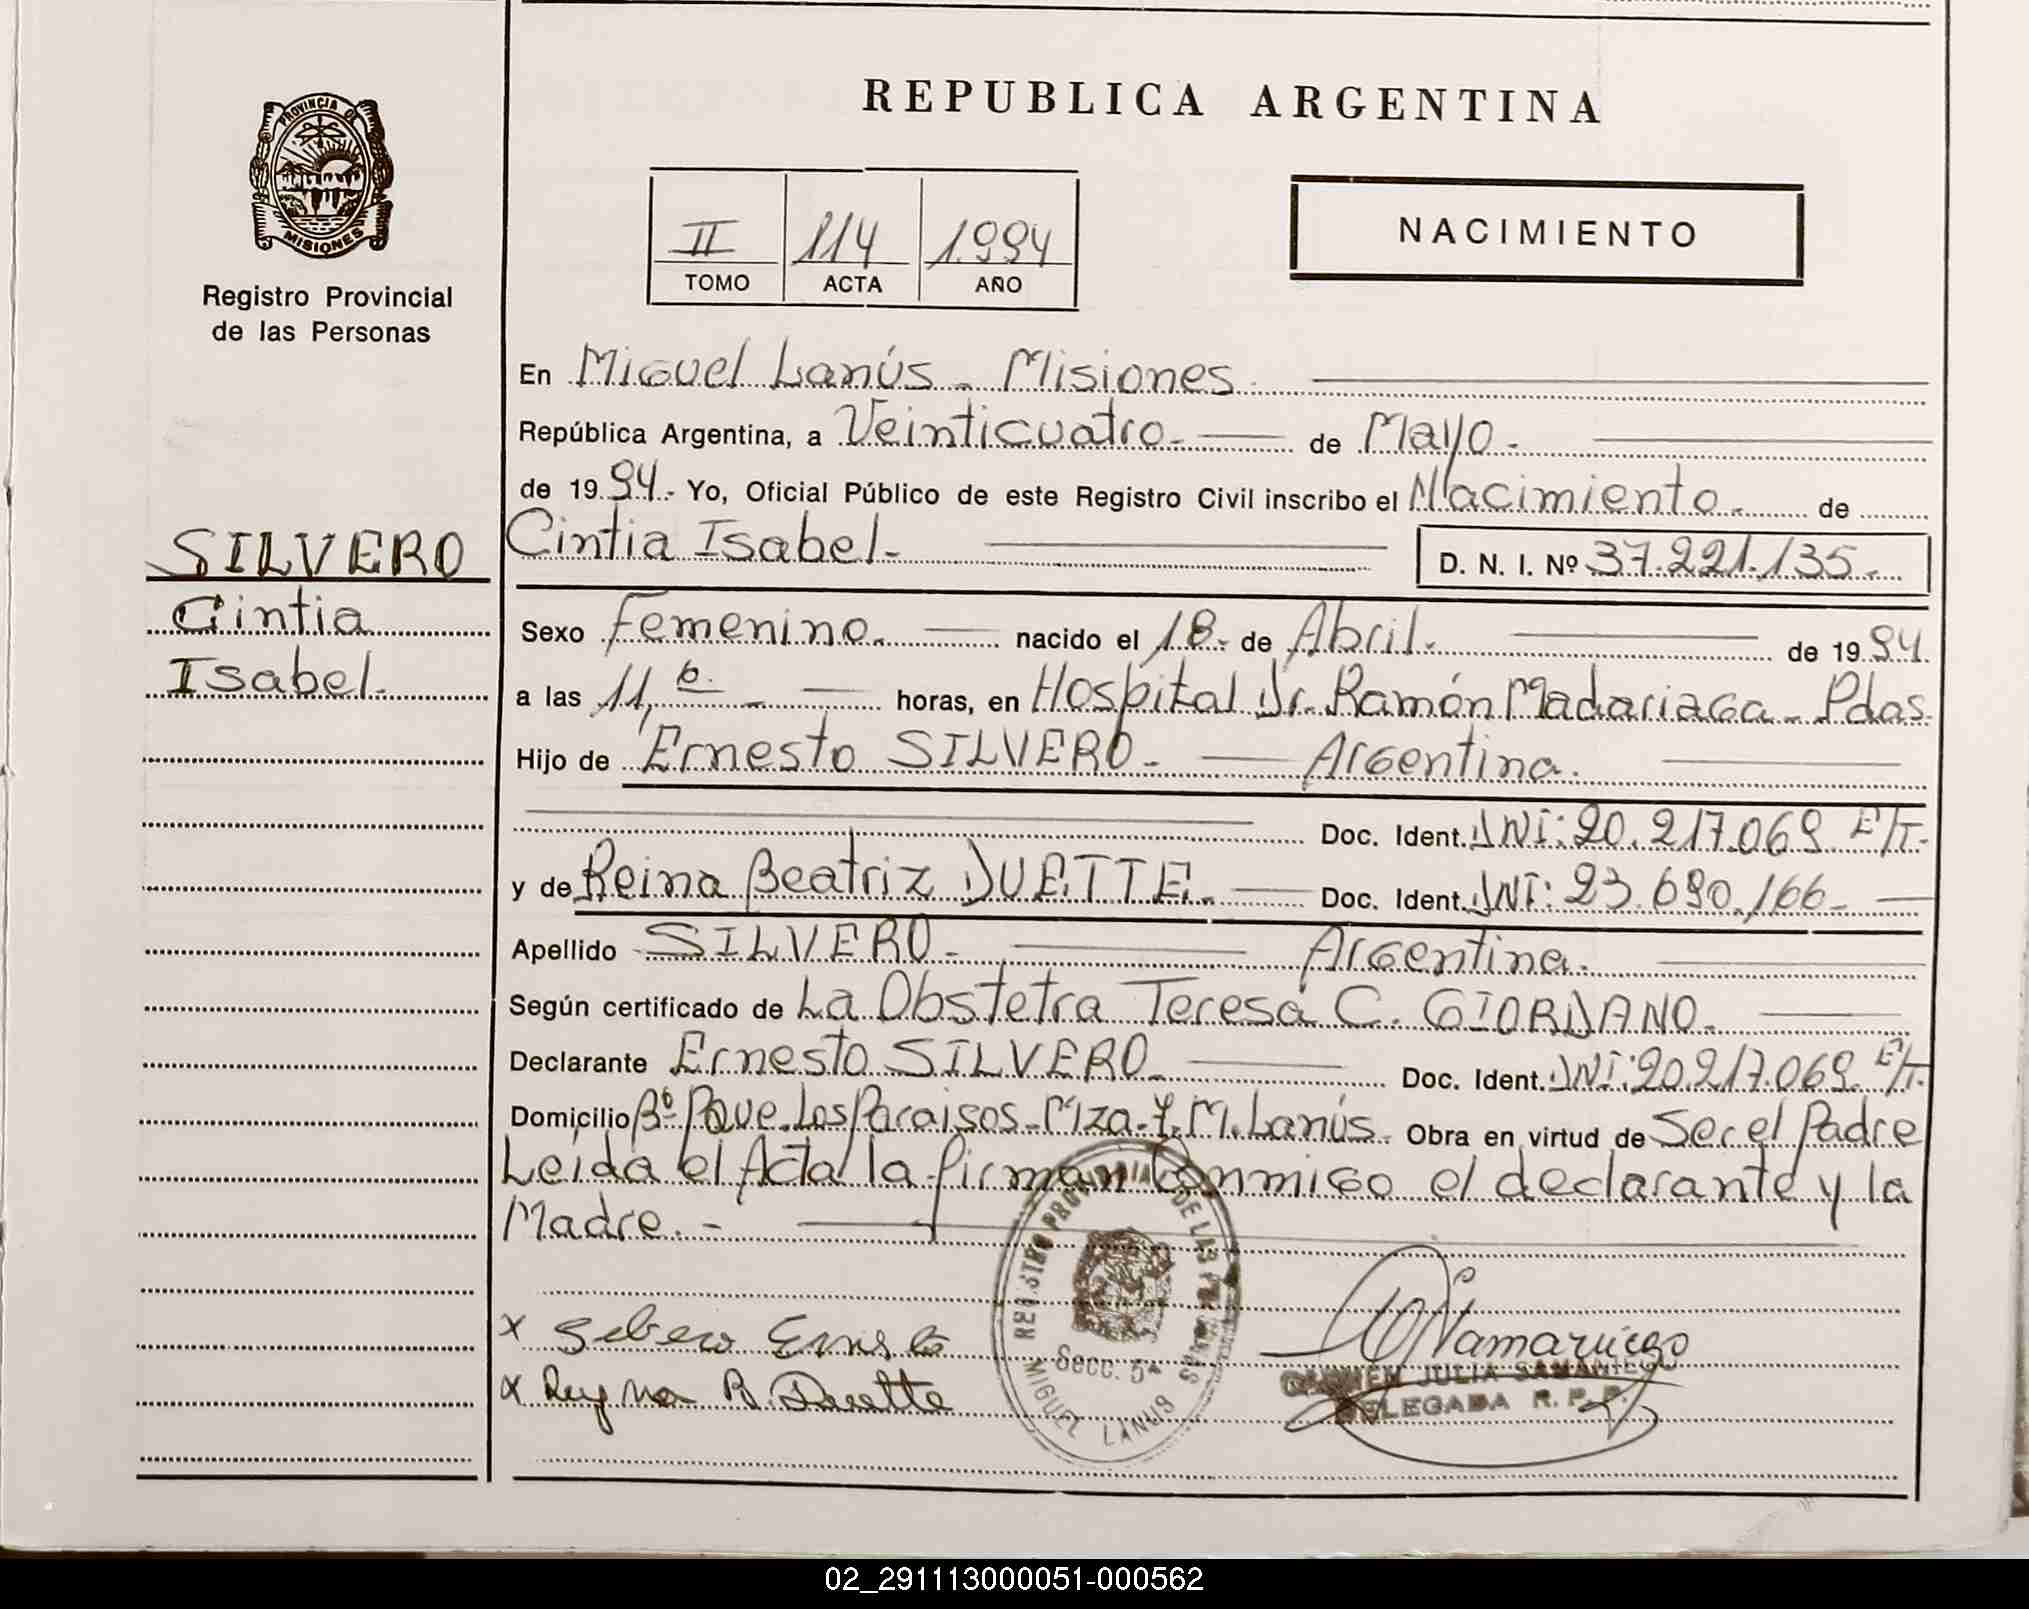 REPUBLICA ARGENTINA
PROVINCIA DE
MISIONES
Registro Provincial
de las Personas
II 114 1.994
TOMO ACTA AÑO
NACIMIENTO
SILVERO
Cintia
Isabel.
En Miguel Lanús - Misiones.
República Argentina, a Veinticuatro.- de Mayo.-
de 19 94.- Yo, Oficial Público de este Registro Civil inscribo el Nacimiento.- de
Cintia Isabel.- D. N. I. Nº 37.221.135.-
Sexo Femenino.- nacido el 18.- de Abril.- de 19 94.
a las 11, horas, en Hospital Dr. Ramón Madariaga - Pdas.
Hijo de Ernesto SILVERO.- Argentina.
Doc. Ident. DNI: 20.217.069 E/T.
y de Reina Beatriz DUETTE.- Doc. Ident. DNI: 23.690.166.-
Apellido SILVERO.- Argentina.
Según certificado de La Obstetra Teresa C. GIORDANO.-
Declarante Ernesto SILVERO.- Doc. Ident. DNI: 20.217.069 E/T.
Domicilio Bº Pque. Los Paraisos - Mza. M. Lanús. Obra en virtud de Ser el Padre
Leída el Acta la firman Conmigo el declarante y la
Madre.-
REGISTRO PROVINCIAL DE LAS PERSONAS
Secc. 5ª
MIGUEL LANUS
x Silvero Ernesto
x Reyna B. Duette
Samaniego
CARMEN JULIA SAMANIEGO
DELEGADA R. P. P.
02_291113000051-000562